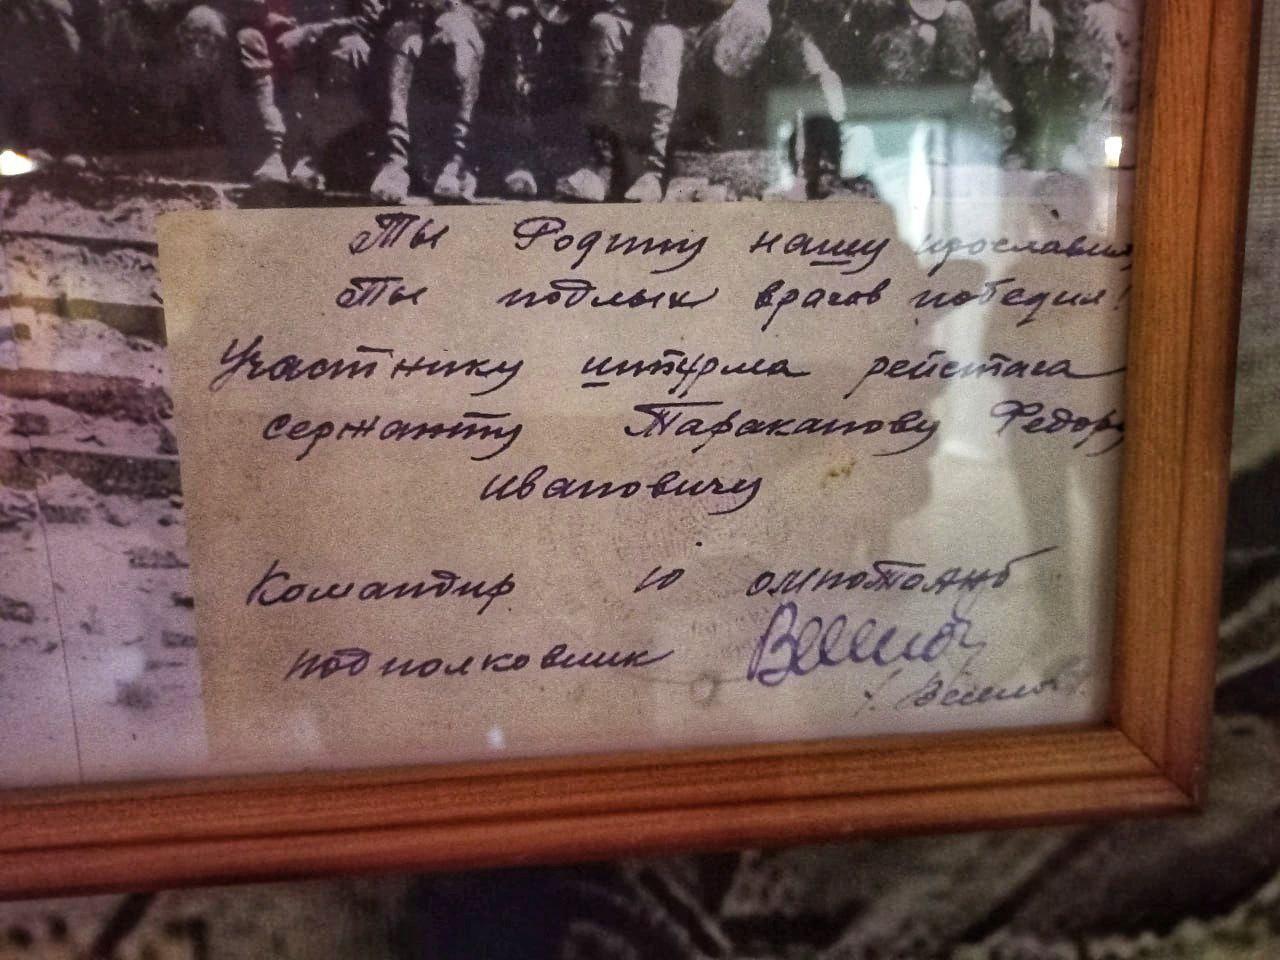 Ты Родину нашу прославил,
Ты подлых врагов победил!
Участнику штурма рейстага
сержанту Тараканову Федору
Ивановичу
Командир 10
подполковник